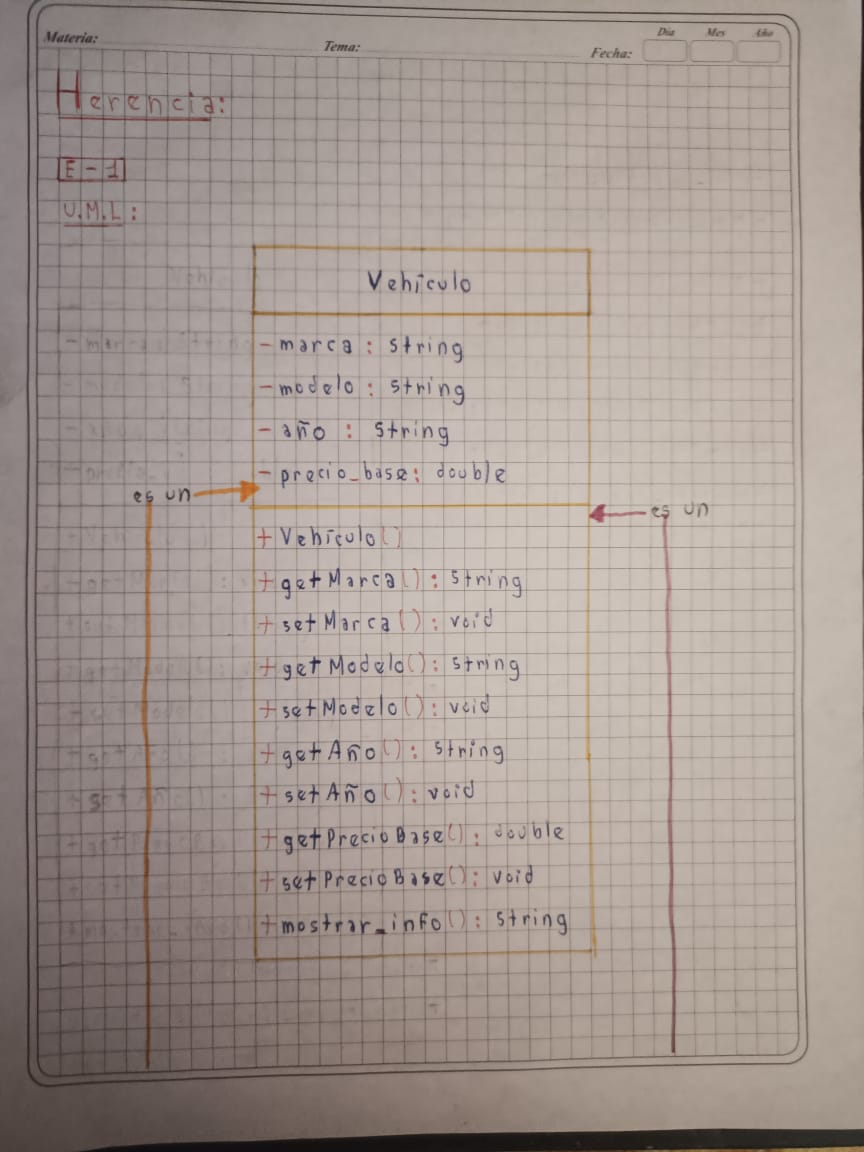 Materia:
Tema:
Fecha:
Día Mes Año
Herencia:
E-1
U.M.L:
Vehículo
- marca: string
- modelo: string
- año: string
- precio_base: double
es un
es un
+ Vehículo()
+ getMarca(): string
+ setMarca(): void
+ getModelo(): string
+ setModelo(): void
+ getAño(): string
+ setAño(): void
+ getPrecioBase(): double
+ setPrecioBase(): void
+ mostrar_info(): string